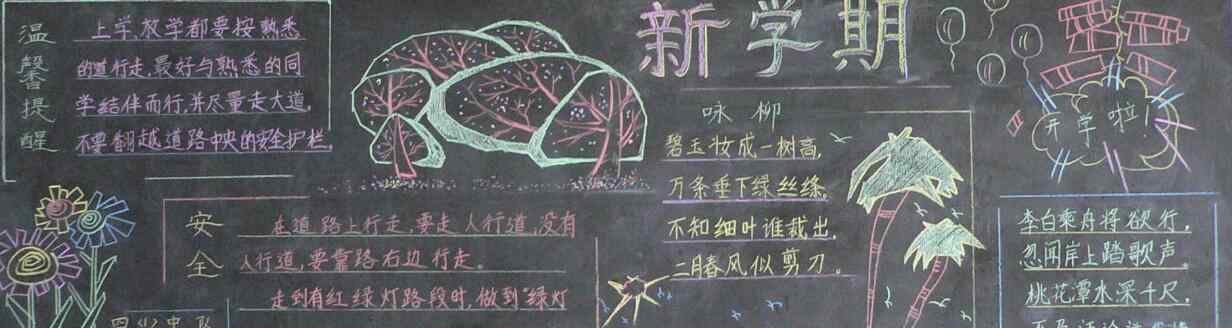 温馨提醒
上学、放学都要按熟悉
的道行走,最好与熟悉的同
学结伴而行,并尽量走大道,
不要翻越道路中央的安全护栏。
新学期
开学啦!
咏柳
碧玉妆成一树高,
万条垂下绿丝绦。
不知细叶谁裁出,
二月春风似剪刀。
安全
在道路上行走,要走人行道,没有
人行道,要靠路右边行走。
走到有红绿灯路段时,做到“绿灯
李白乘舟将欲行,
忽闻岸上踏歌声。
桃花潭水深千尺,